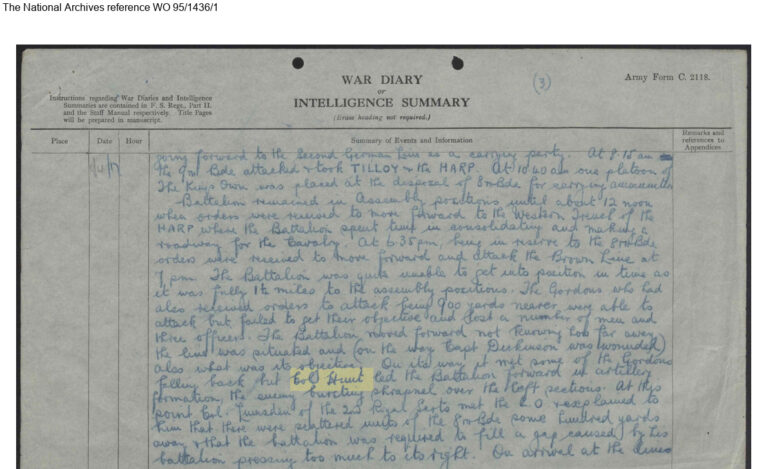 The National Archives reference WO 95/1436/1
Army Form C. 2118.
WAR DIARY
(3)
or
INTELLIGENCE SUMMARY
(Erase heading not required.)
Instructions regarding War Diaries and Intelligence
Summaries are contained in F. S. Regs., Part II.
and the Staff Manual respectively. Title Pages
will be prepared in manuscript.
Place Date Hour Summary of Events and Information Remarks and references to Appendices
going forward to the Second German Line as a carrying party. At 8.15 am
the 9th Bde attacked & took TILLOY & the HARP. At 10.40 am one platoon of
The Kings Own was placed at the disposal of 8th Bde for carrying ammunition
Battalion remained in Assembly positions until about 12 noon
when orders were received to move forward to the Western Trench of the
HARP where the Battalion spent time in consolidating and making a
roadway for the Cavalry. At 6.35 pm, being in reserve to the 8th Bde
orders were received to move forward and attack the Brown Line at
7 pm. The Battalion was quite unable to get into position in time as
it was fully 1½ miles to the assembly positions. The Gordons who had
also received orders to attack being 900 yards nearer were able to
attack but failed to get their objective and lost a number of men and
three officers. The Battalion moved forward not knowing how far away
the line was situated and (on the way Capt Dickinson was wounded)
also what was its objective. On its way it met some of the Gordons
falling back but Col Hunt led the Battalion forward in artillery
formation, the enemy bursting shrapnel over the left sections. At this
point Col. of the 2nd Royal Scots met the C.O & explained to
him that there were scattered units of the 8th Bde some hundred yards
away & that the battalion was required to fill a gap caused by his
battalion pressing too much to its right. On arrival at the